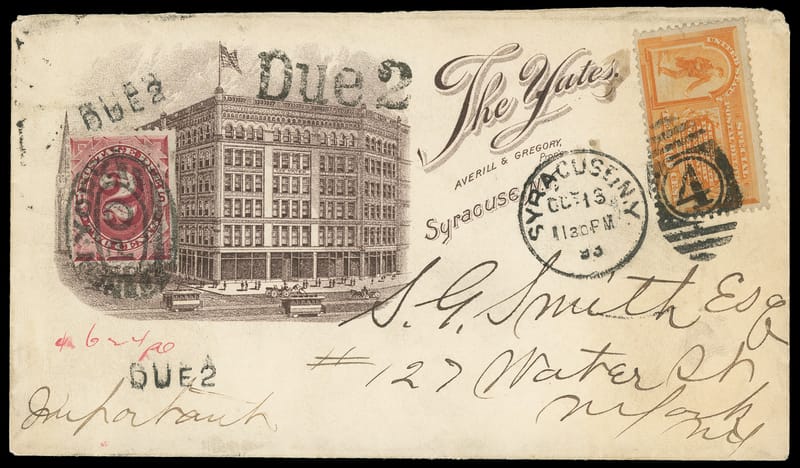 Due 2
DUE 2
The Yates.
AVERILL & GREGORY,
Prop's
Syracuse, N.Y.
SYRACUSE N.Y.
OCT 13
11 30 PM
93
4
UNITED STATES
SPECIAL
2
S. G. Smith Esq
# 127 Water St
N York
NY
DUE 2
Important